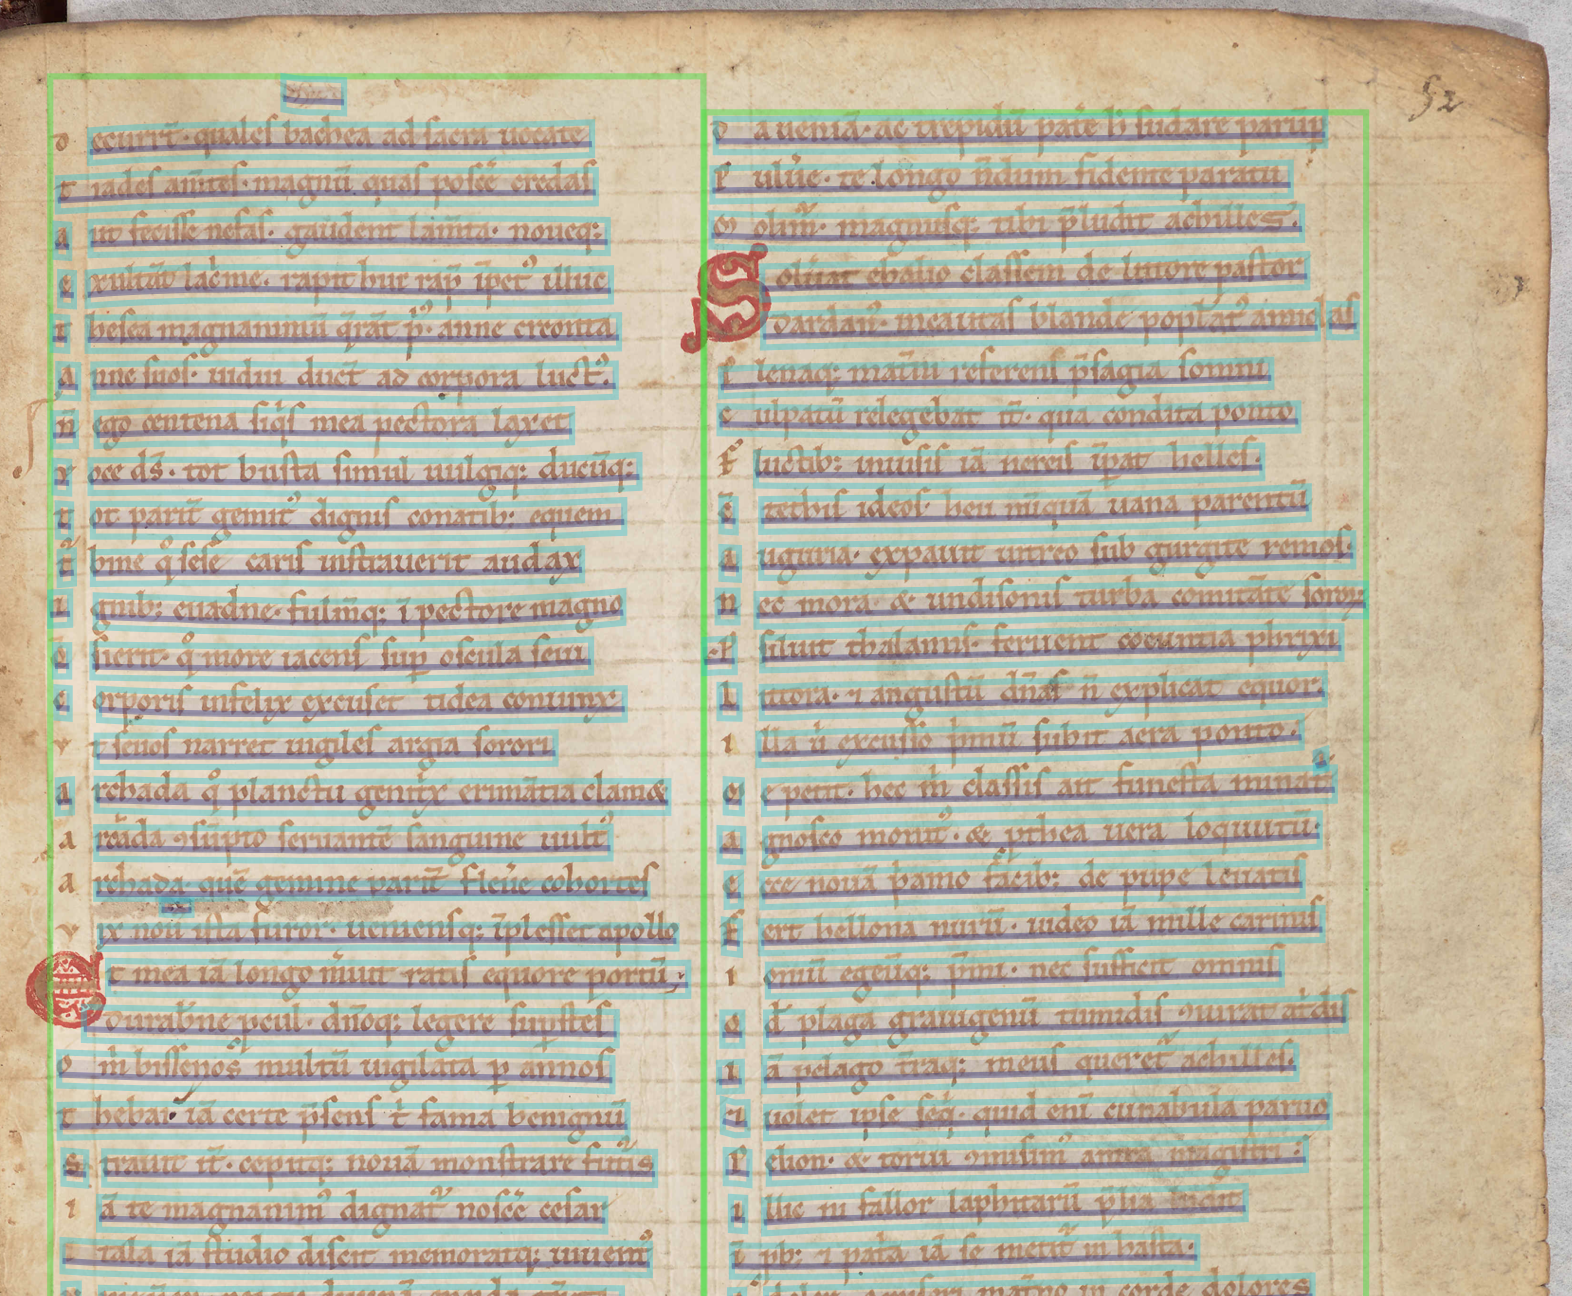 D ecurrr̄t· quales bachea ad sacra uocate
t iades am̄tes· magnū quas poscē credas
a ut fecisse nefas· gaudent lam̄ta· noueq:
e xultāt lac̓me· rapit huc rap̄ īpetꝰ illuc
t hesea magnanimū q̄rāt p̓ꝰ· anne creonta
a nne suos· uidui ducūt ad corpora luctꝰ·
n̄ ego centena siq̓s mea pectora laxet
v oce ds̄· tot busta simul uulgiq: ducūq:
t ot parit̄ gemitꝰ dignis conatib: equem
t᷑ bine qͦ sese caris instrauerit audax
i gnib: euadne· fulm̄q: ī pectore magno
q̄ sierit· qͦ more iacens suꝑ oscula seui
c orporis infelix excuset tidea coniunx·
v t seuos narret uigiles argia sorori
a rchada qͦ planctu genit̓x erimātia clam&
a rcāda ꝯsūpto seruantē sanguine uultꝰ
a rchada· quē gemine parit̄ fleūe cohortes
v ix nouꝰ ista furor· ueniensq: īplesset apollo
Et mea iā longo m̓uit ratis equore portū·
Durab̓ne ꝓcul· dn̄oq: legere suꝑstes
O m̓ bissenos multū uigilata ꝑ annos
t hebai· iā certe p̄sens t̓ fama benignū
s trauit it̄· cepitq: nouā monstrare futuris
i ā te magnanimꝰ dignat᷑ noscē cesar
i tala iā studio discit memoratq: iuuentꝰ
D a ueniā· ac trepidū pat̓e h̓ sudare parūp
P uluīe· te longo n̄dum fidente paratu
M olim̄· magnusq: tibi p̄ludit achilles·
Soluat ebalio classem de littore pastor
Dardanꝰ· incautas blande populatꝰ amiclas
P lenaq: mat̄ni referens p̄sagia somni
c ulpatū relegebat it̄· qua condita ponto
F luctib: inuisis iā nereis īꝑat helles·
c̄ tethis ideos· heu nūquā uana parentū
a uguria· expauit uitreo sub gurgite remos·
N ec mora· & undisonis turba comitāte soror
P siliit thalamis· feruent coeuntia phrixi
l ittora· ⁊ angustū dn̄as n̄ explicat equor·
i lla u̓ excusso p̓mū subit aera ponto·
M e petit· hec m̓ classis ait funesta minat᷑
a gnosco monitꝰ· & ꝓthea uera loquutū·
e cce nouā p̓amo facib: de pupe leuatis
F ert bellona nurū· uideo iā mille carinis
i oniū egeūq: p̄mi· nec sufficit omnis
q d̓ plaga graiugenū tumidis ꝯiurat at̓dis
i ā pelago t̄raq: meus queret᷑ achilles·
⁊ uolet ipse seq̓· quid enī cunabula paruo
P elion· & torui ꝯmisimꝰ antra magistri·
i llic ni fallor laphitarū p̄lia
i pb: ⁊ pat̓a iā se metit᷑ in hasta·